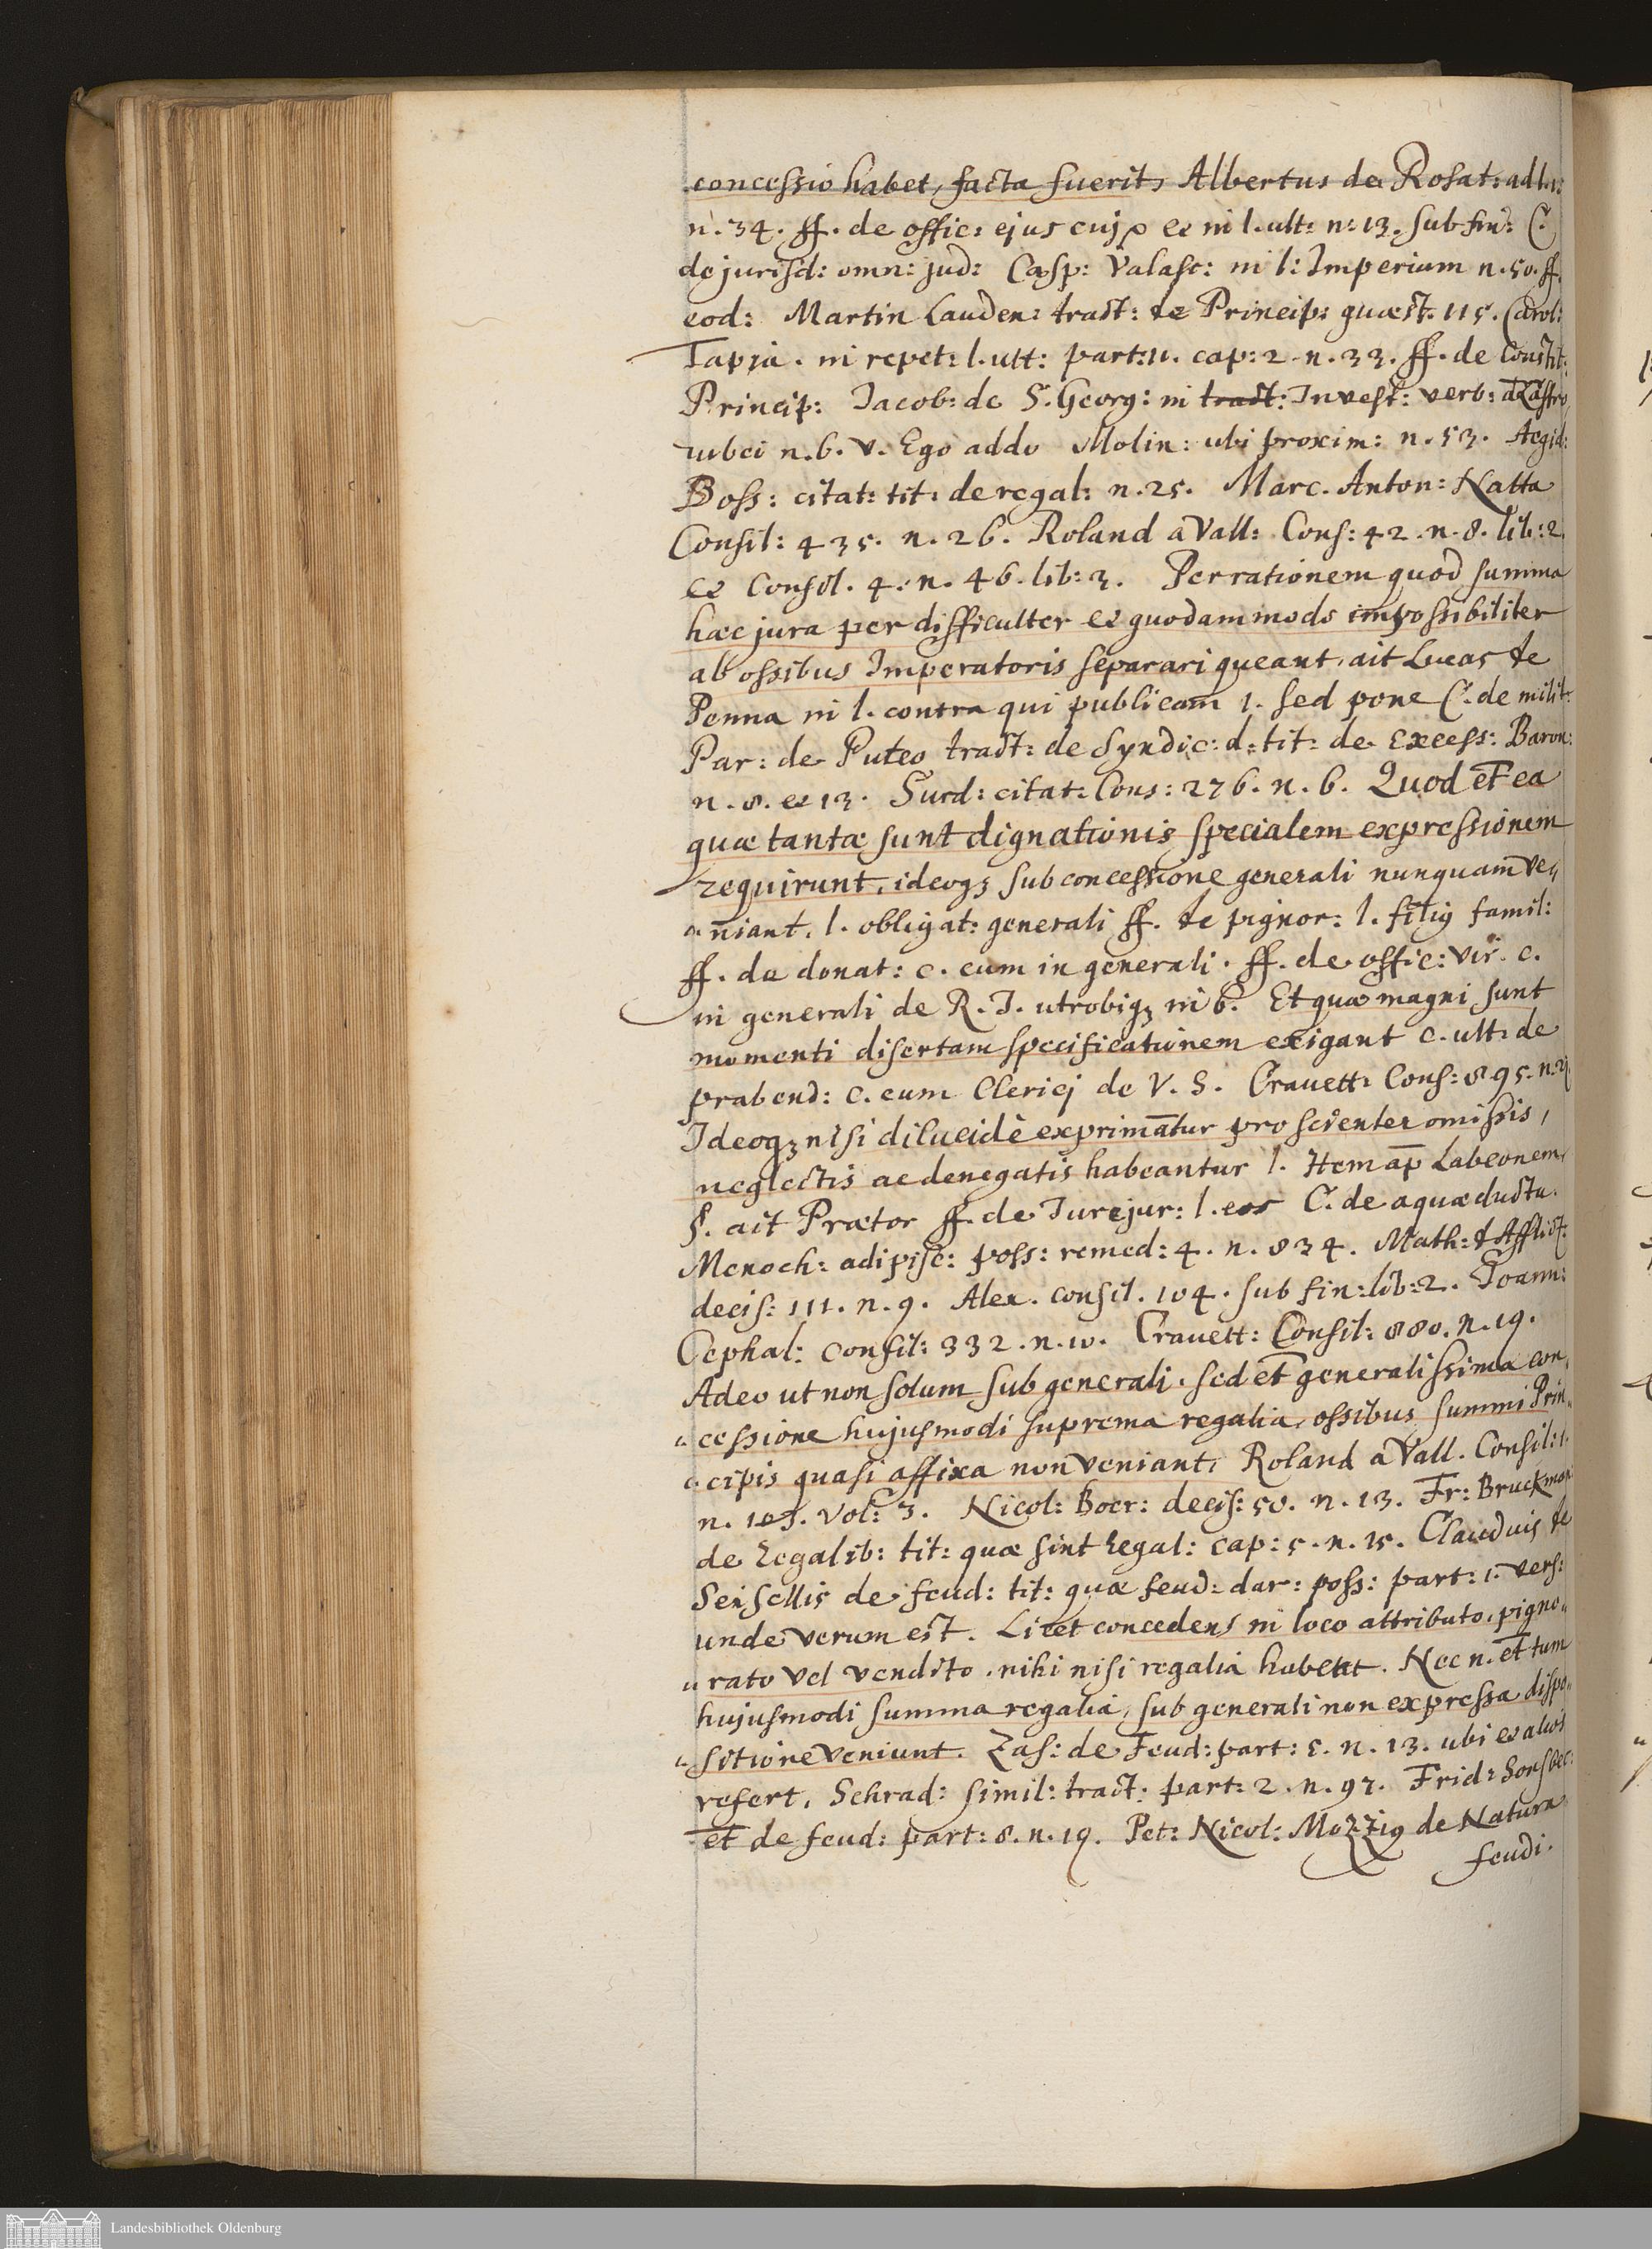 concessio habet, facta fuerit, Albertus de Rosat: ad l. 1:
n. 34. ff. de offic: ejus cuj9 et in l. ult: n: 13. sub fin: C.
de jurisd: omn: jud: Casp: Valasc: in l: Imperium n. 50. ff.
eod: Martin Lauden: tract: de Princip: quæst. 115. Carol:
Tapia. in repet: l. ult: part: 11. cap: 2. n. 33. ff. de Constit:
Princip: Jacob: de S. Georg: in tract: Invest: verb: d Castro
n. 6. v. Ego addo Molin: ubi proxim: n. 53. Aegid:
Boss: citat: tit: de regal: n. 25. Marc. Anton: Natta
Consil: 435. n. 26. Roland a Vall: Cons: 42. n. 8. lib: 2.
et Consil. 4. n. 46. lib: 3. Per rationem quod summa
hæc jura per difficulter et quodammodo impossibiliter
ab ossibus Imperatoris separari queant, ait Lucas de
Penna in l. contra qui publicam 1. sed pone C. de milit:
Par: de Puteo tract: de Syndic: d: tit: de Excess: Baron:
n. 8. et 13. Surd: citat: Cons: 276. n. 6. Quod et ea
quæ tantæ sunt dignationis specialem expressionem
requirunt, ideoq3 sub concessione generali nunquam ve„
„niant. l. obligat: generali ff. de pignor: l. filig famil:
ff. de donat: c. cum in generali. ff. de offic: vir. c.
in generali de R. J. utrobiq3 in 6. Et quæ magni sunt
momenti disertam specificationem exigant c. ult: de
præbend: c. cum Clericj de V. S. Crauett: Cons: 895. n.
Ideoq3 nisi dilucidè exprimātur pro scienter omissis,
neglectis ac denegatis habeantur l. Item ap̄ Labeonem,
§. ait Prætor ff. de Jurejur: l. eos C. de aquæductu.
Menoch: adipisc: poss: remed: 4. n. 834. Math: d Afflict:
decis: 111. n. 9. Alex. consil. 104. sub fin: lib: 2. Joann:
Cephal: Consil: 332. n. 10. Crauett: Consil: 880. n. 19.
Adeo ut non solum sub generali, sed et generalissima con„
„cessione hujusmodi suprema regalia, ossibus summi Prin„
„cipis quasi affixa non veniant, Roland a Vall. Consil: 1.
n. 103. vol: 3. Nicol: Boer: decis: 50. n. 13. Fr: Bruckman
de Regalib: tit: quæ sint Regal: cap: 5. n. 15. Claudius de
Seisellis de feud: tit: quæ feud: dar: poss: part: 1. vers:
unde verum est. Licet concedens in loco attributo, pigno„
„rato vel vendito, nihi nisi regalia habent. Nec n. et tum
hujusmodi summa regalia, sub generali non expressa dispo„
„sitione veniunt. Zas: de Feud: part: 5. n. 13. ubi et alios
refert, Schrad: simil: tract: part: 2. n. 97. Frid: Sonsbec:
et de feud: part: 8. n. 19. Pet: Nicol: Mozzig de Natura
feudi.
Landesbibliothek Oldenburg